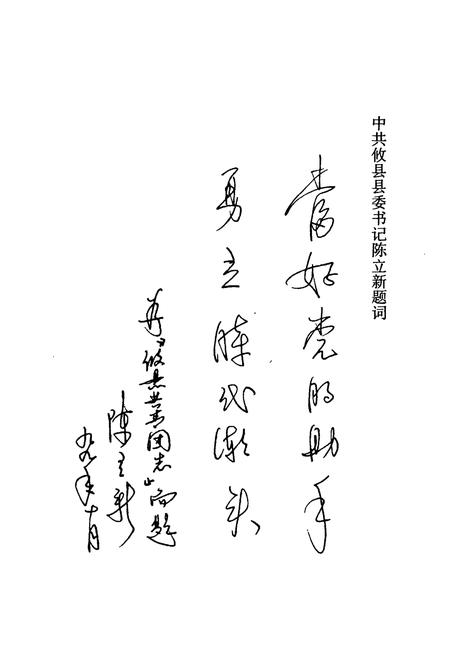 中共攸县县委书记陈立新题词
當好党的助手
勇立時代潮头
为《攸县共青团志》而题
陈立新
九九年十月